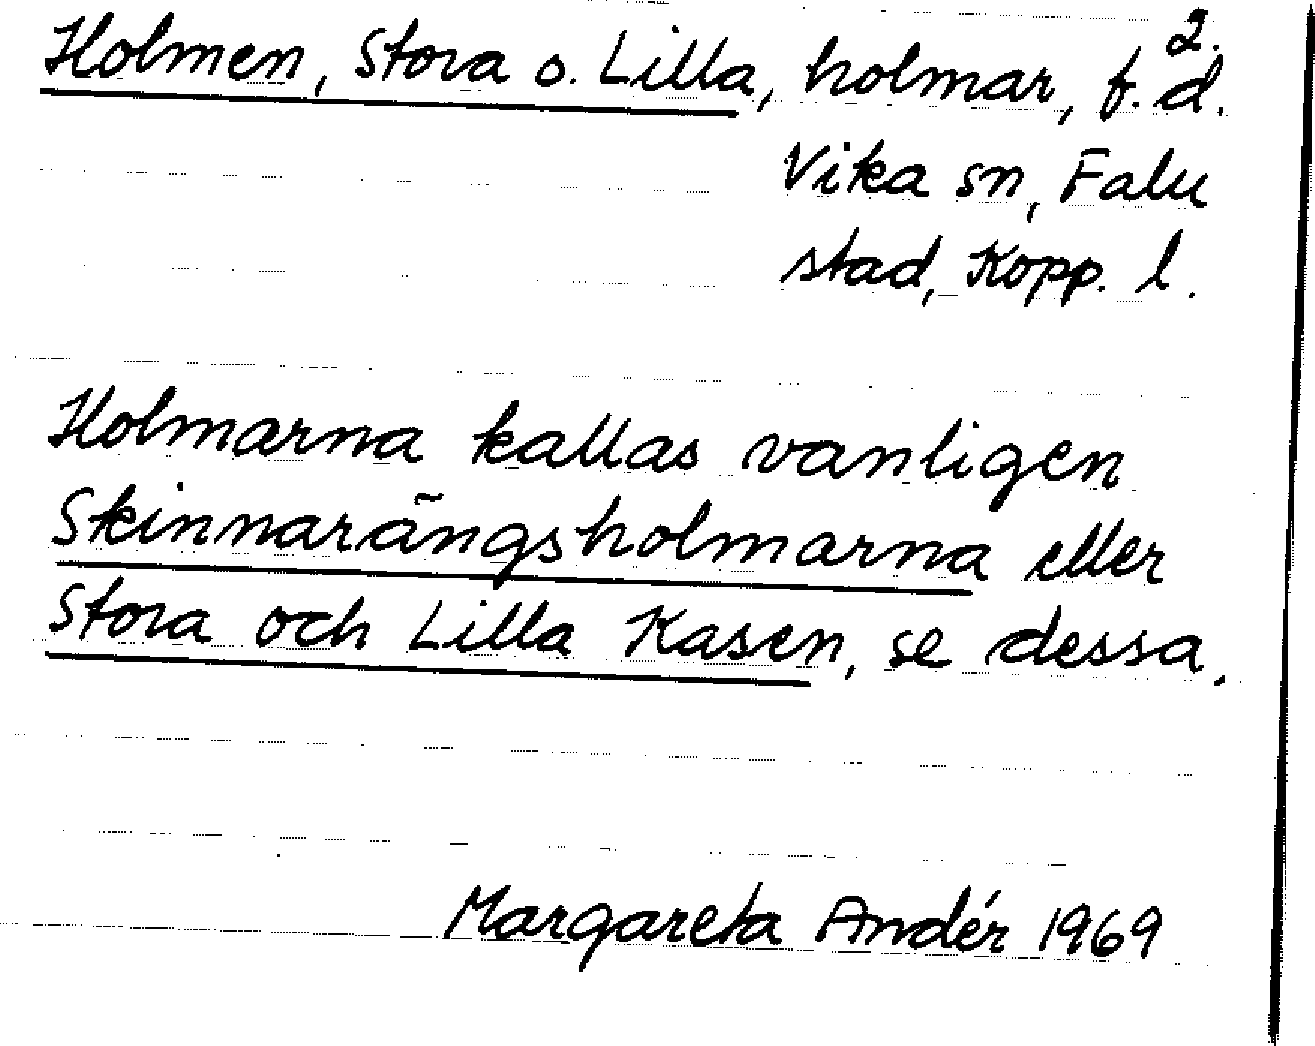 2.
Holmen, Stora o. Lilla, holmar, f.d.
Vika sn, Falu
stad, Kopp. l.
Holmarna kallas vanligen
Skinnarängsholmarna eller
Stora och Lilla Kasen, se dessa.
Margareta Andér 1969